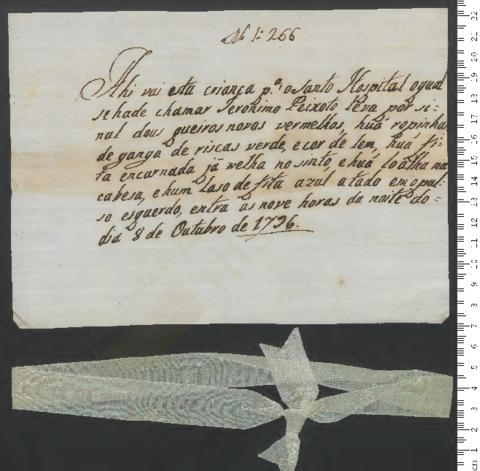 Nº 1: 266
Ahi vai esta criança p.ª o Santo Hospital o qual
se hade chamar Jeronimo Peixoto leva por si-
nal dous queiros novos vermelhos, huã ropinha
de ganga de riscas verde, e cor de lem, huã fi-
ta encarnada já velha no sinto, e huã toalha na
cabesa, e hum laso de fita azul atado em o pul-
so esquerdo, entra as nove horas da noite do-
dia 8 de Outubro de 1796.
cm 1 2 3 4 5 6 7 8 9 10 11 12 13 14 15 16 17 18 19 20 21 22